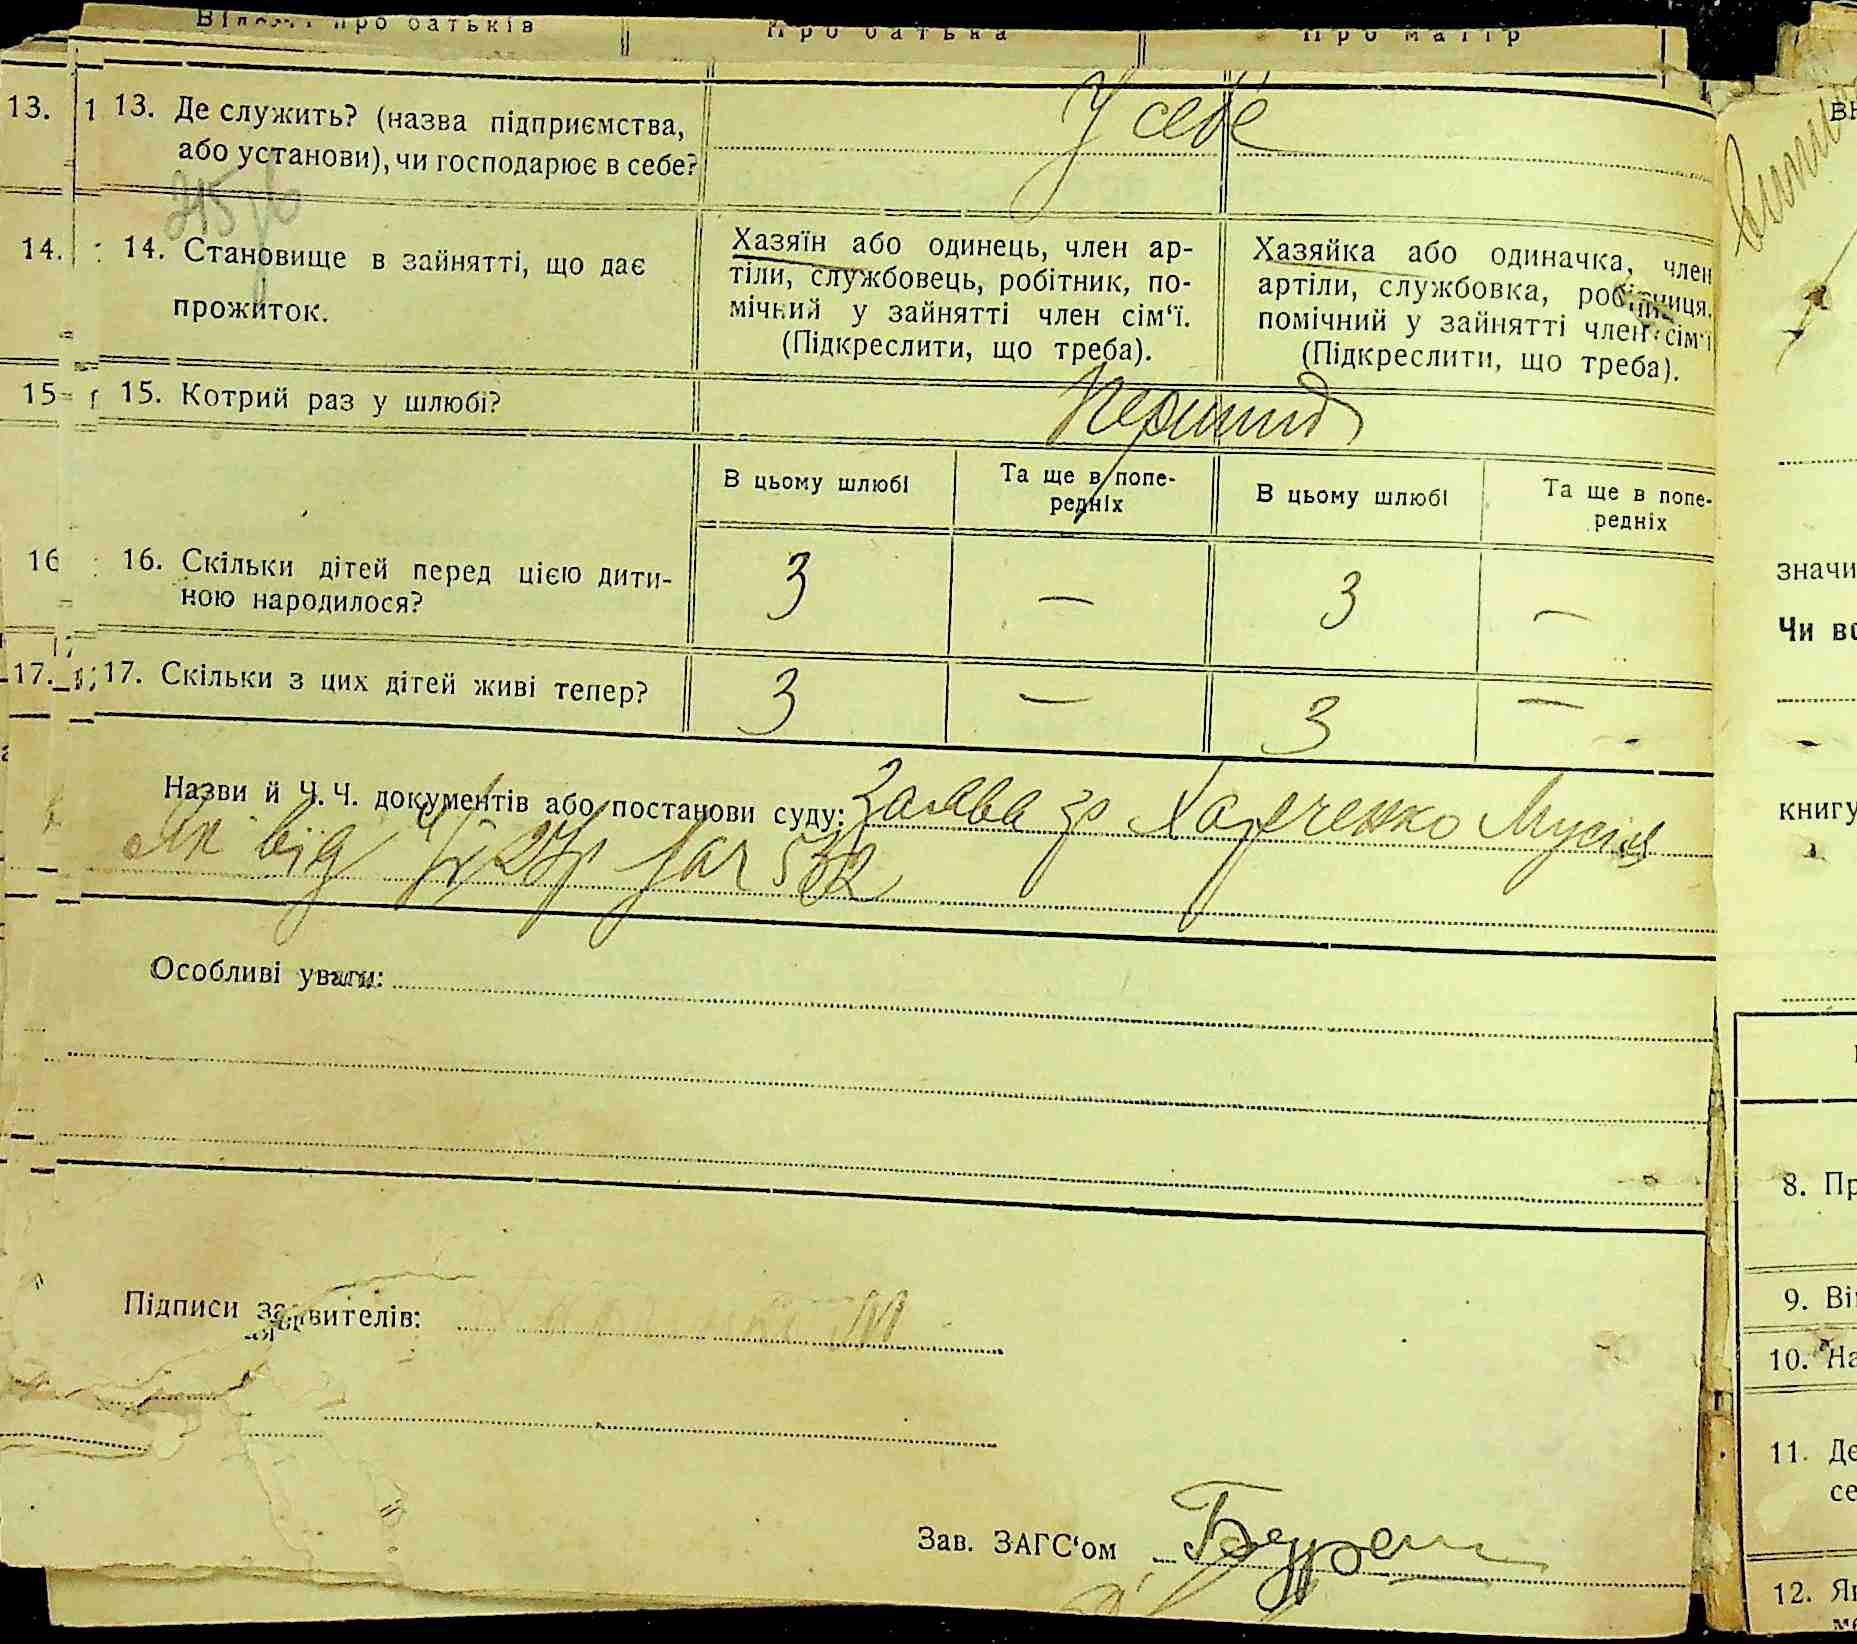 Відомості про батьків Про батька Про матір
13. 13. Де служить? (назва підприємства,
або установи), чи господарює в себе?
У себе
14. 14. Становище в зайнятті, що дає
прожиток.
Хазяїн або одинець, член ар-
тіли, службовець, робітник, по-
мічний у зайнятті член сім‘ї.
(Підкреслити, що треба).
Хазяйка або одиначка, член
артіли, службовка, робітниця,
помічний у зайнятті член сім‘ї
(Підкреслити, що треба).
15 15. Котрий раз у шлюбі?
Перший
В цьому шлюбі
Та ще в попе-
редніх
В цьому шлюбі
Та ще в попе-
редніх
16 16. Скільки дітей перед цією дити-
ною народилося?
3 — 3 —
17. 17. Скільки з цих дітей живі тепер?
3 — 3 —
Назви й Ч.Ч. документів або постанови суду: Заява гр Харченко Мусія
від
Особливі уваги:
Підписи заявителів:
Зав. ЗАГС‘ом
значи
книгу
8. Пр
9. Ві
10. На
11. Де
се
12. Як